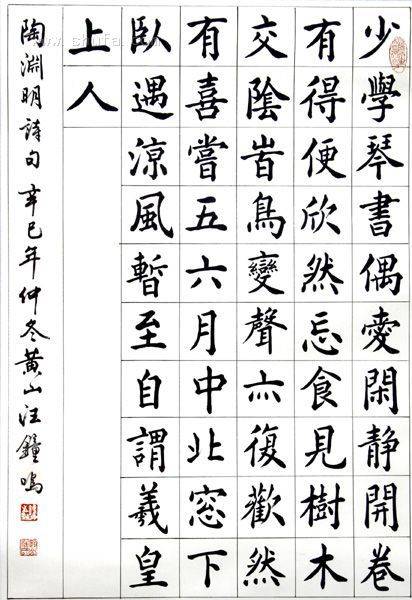 少學琴書偶愛閑靜開卷
有得便欣然忘食見樹木
交陰旹鳥變聲亦復歡然
有喜嘗五六月中北窓下
臥遇涼風暫至自謂羲皇
上人
陶淵明詩句辛巳年仲冬黃山汪鐘鳴